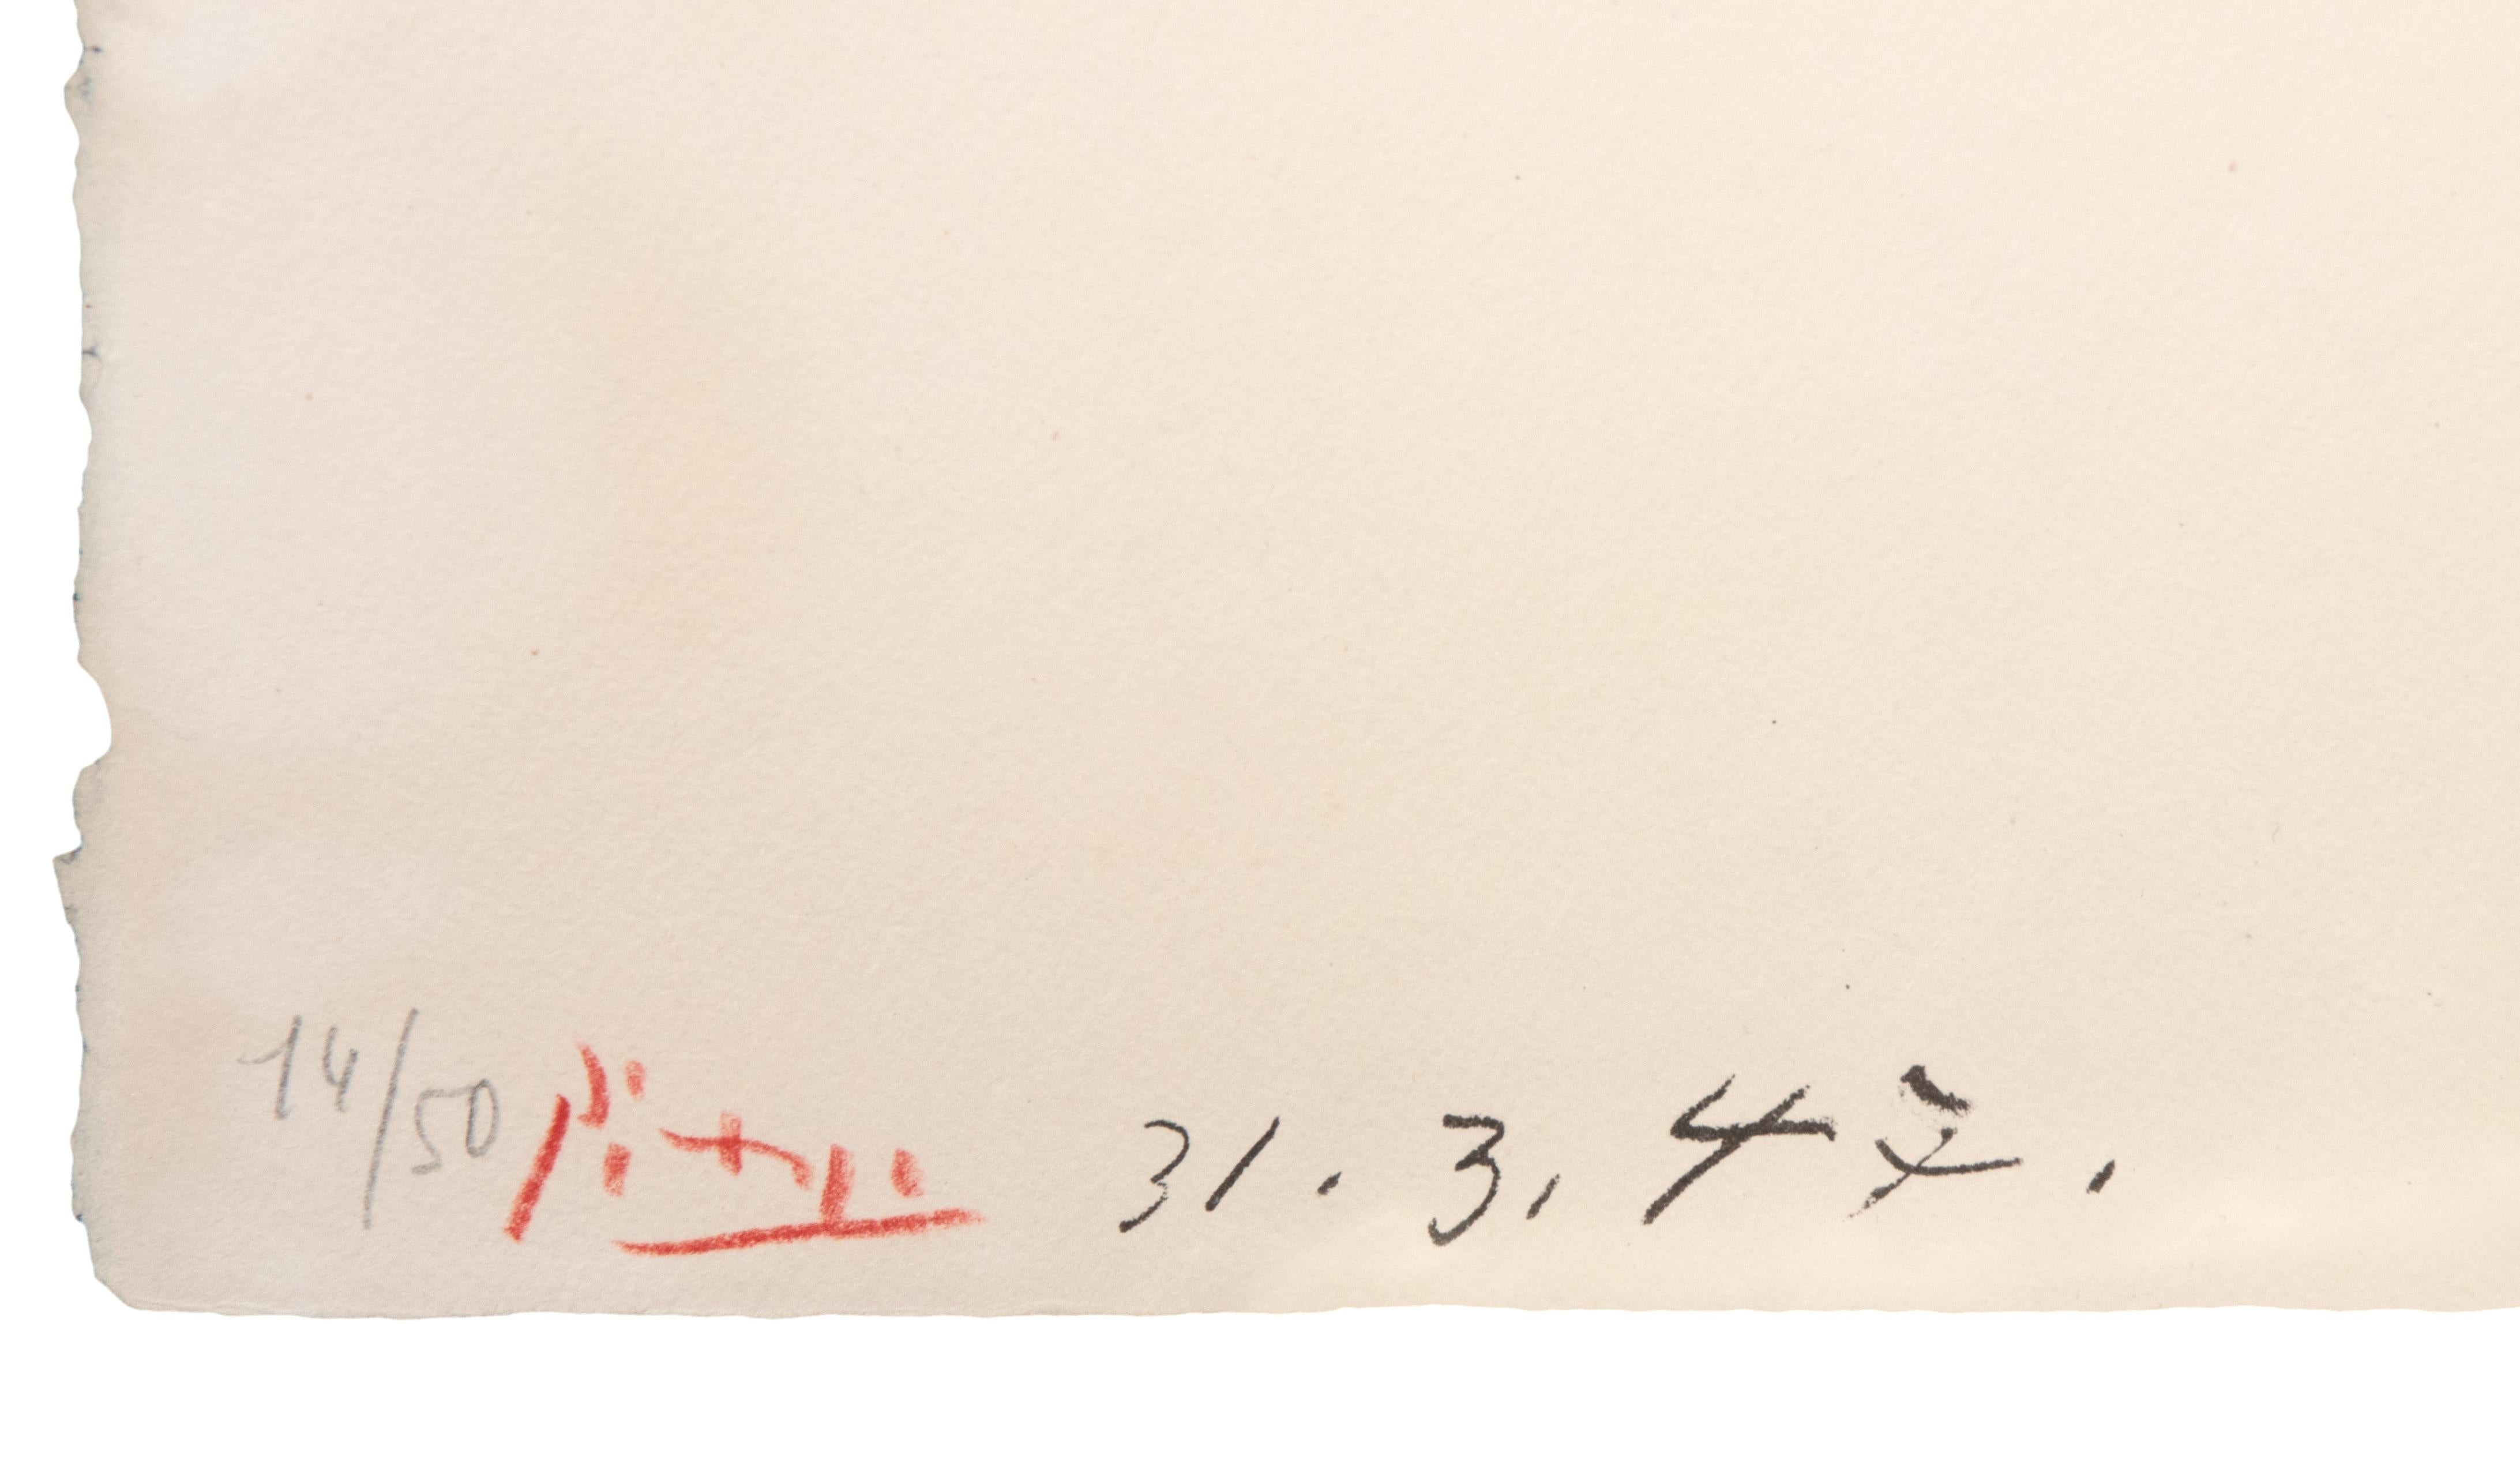 14/50 Picasso 31.3.47.